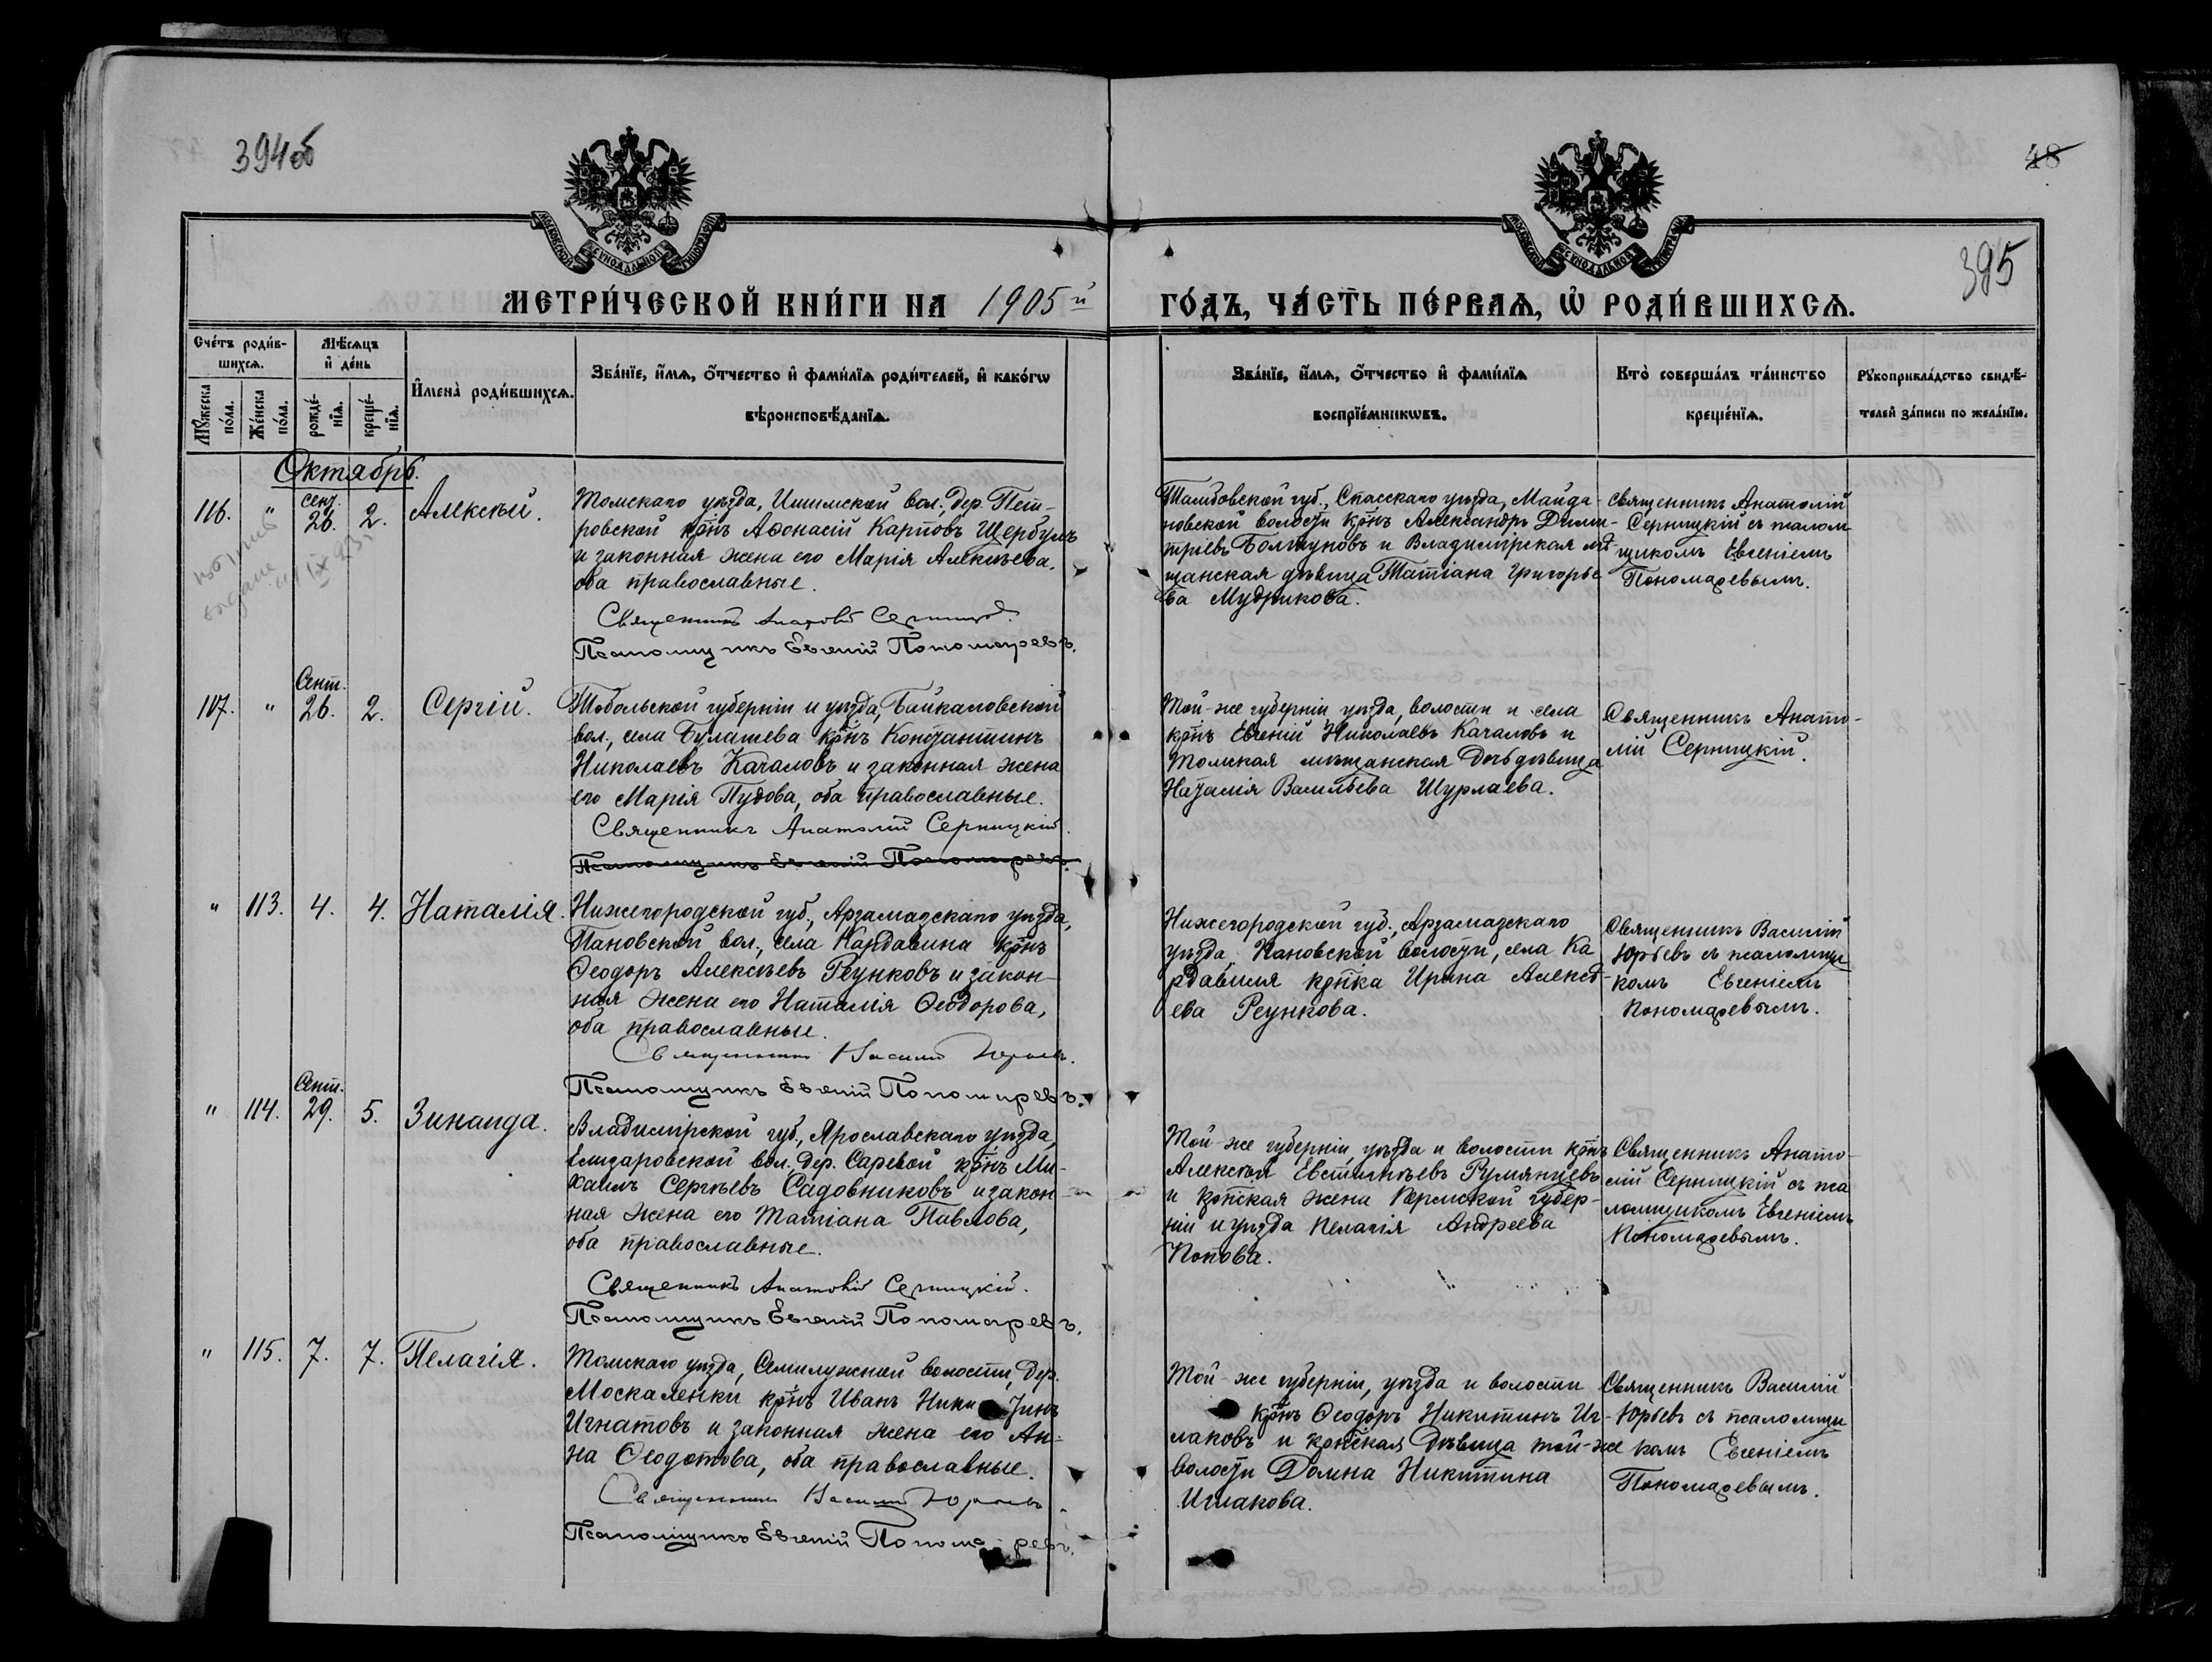 394об
48
395
МОСКОВСКОЙ СѴНОДАЛЬНОЙ ТИПОГРАФІИ
МОСКОВСКОЙ СѴНОДАЛЬНОЙ ТИПОГРАФІИ
МЕТРИ́ЧЕСКОЙ КНИ́ГИ НА 1905й ГО́ДЪ, ЧА́СТЬ ПЕ́РВАѦ, Ѡ҆ РОДИ́ВШИХСѦ.
Сче́тъ роди́в-
шихсѧ.
Мѣ́сѧцъ
и҆ де́нь
И҆мена̀ роди́вшихсѧ.
Зва́нїе, и҆́мѧ, ѻ҆́тчество и҆ фами́лїѧ роди́телей, и҆ како́гѡ
вѣроисповѣ́данїѧ.
Мꙋ́жеска
по́ла.
Же́нска
по́ла.
рожде́-
нїѧ.
креще́-
нїѧ.
Зва́нїе, и҆́мѧ, ѻ҆́тчество и҆ фами́лїѧ
воспрїе́мникѡвъ.
Кто̀ соверша́лъ та́инство
креще́нїѧ.
Рꙋкоприкла́дство свидѣ́-
телей за́писи по жела́нїю.
Октябрь.
116. " сент. 26. 2. Алексѣй.
Томскаго уѣзда, Ишимской вол., дер. Пет-
ровской крнъ Аѳонасій Карповъ Щербулъ
и законная жена его Марія Алексѣева,
оба православные.
Священникъ Анатолій Серницкій.
Псаломщикъ Евгеній Пономаревъ.
Тамбовской губ., Спасскаго уѣзда, Майда-
новской волости крнъ Александръ Дими-
тріевъ Болтуновъ и Владимірская мѣ-
щанская дѣвица Татіана Григорье-
ва Мудрикова.
Священникъ Анатолій
Серницкій съ псалом-
щикомъ Евгеніемъ
Пономаревымъ.
107. " Сент. 26. 2. Сергій.
Тобольской губерніи и уѣзда, Байкаловской
вол., села Булашева крнъ Константинъ
Николаевъ Качаловъ и законная жена
его Марія Пудова, оба православные.
Священникъ Анатолій Серницкій.
Псаломщикъ Евгеній Пономаревъ.
Той-же губерніи уѣзда, волости и села
крнъ Евгеній Николаевъ Качаловъ и
Томская мѣщанская дочь дѣвица
Наталія Васильева Шурлаева.
Священникъ Анато-
лій Серницкій.
" 113. 4. 4. Наталія.
Нижегородской губ., Арзамазскаго уѣзда,
Пановской вол., села Кардавина крнъ
Ѳеодоръ Алексѣевъ Реунковъ и закон-
ная жена его Наталія Ѳеодорова,
оба православные.
Священникъ Василій Юрьевъ.
Псаломщикъ Евгеній Пономаревъ.
Нижегородской губ., Арзамазскаго
уѣзда, Пановской волости, села Ка
рдавиля крнка Ирина Алексѣ-
ева Реункова.
Священникъ Василій
Юрьевъ съ псаломщи
комъ Евгеніемъ
Пономаревымъ.
" 114. Сент. 29. 5. Зинаида.
Владимірской губ., Ярославскаго уѣзда,
Елизаровской вол., дер. Саревой крнъ Ми-
хаилъ Сергѣевъ Садовниковъ и закон
ная жена его Татіана Павлова,
оба православные.
Священникъ Анатолій Серницкій.
Псаломщикъ Евгеній Пономаревъ.
Той-же губерніи, уѣзда и волости крнъ
Алексѣй Евстигнѣевъ Румянцевъ
и крнская жена Пермской губер-
ніи и уѣзда Пелагія Андреева
Попова.
Священникъ Анато-
лій Серницкій съ пса
ломщикомъ Евгеніемъ
Пономаревымъ.
" 115. 7. 7. Пелагія.
Томскаго уѣзда, Семилужной волости, дер.
Москаленки крнъ Иванъ Ники тинъ
Игнатовъ и законная жена его Ан-
на Ѳеодотова, оба православные.
Священникъ Василій Юрьевъ.
Псаломщикъ Евгеній Понома ревъ.
Той-же губерніи, уѣзда и волости
крнъ Ѳеодоръ Никитинъ Иг-
лаковъ и крнская дѣвица той-же
волости Домна Никитина
Иглакова.
Священникъ Василій
Юрьевъ съ псаломщи
комъ Евгеніемъ
Пономаревымъ.